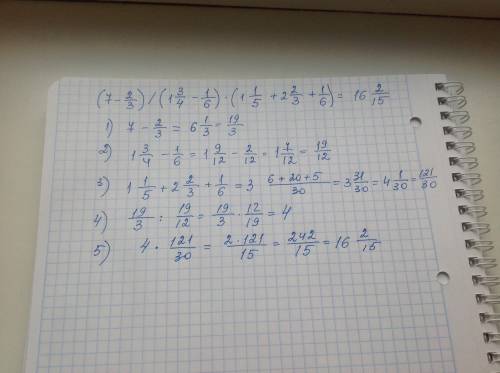 (7 - 2/3) / (1 3/4 - 1/6) · (1 1/5 + 2 2/3 + 1/6) = 16 2/15
1) 7 - 2/3 = 6 1/3 = 19/3
2) 1 3/4 - 1/6 = 1 9/12 - 2/12 = 1 7/12 = 19/12
3) 1 1/5 + 2 2/3 + 1/6 = 3 (6+20+5)/30 = 3 31/30 = 4 1/30 = 121/30
4) 19/3 : 19/12 = 19/3 · 12/19 = 4
5) 4 · 121/30 = 2·121/15 = 242/15 = 16 2/15